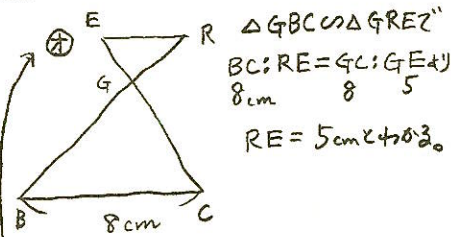 オ
E
R
G
B
C
8cm
△GBC∽△GREで
BC:RE=GC:GEより
8cm 8 5
RE=5cmとわかる。